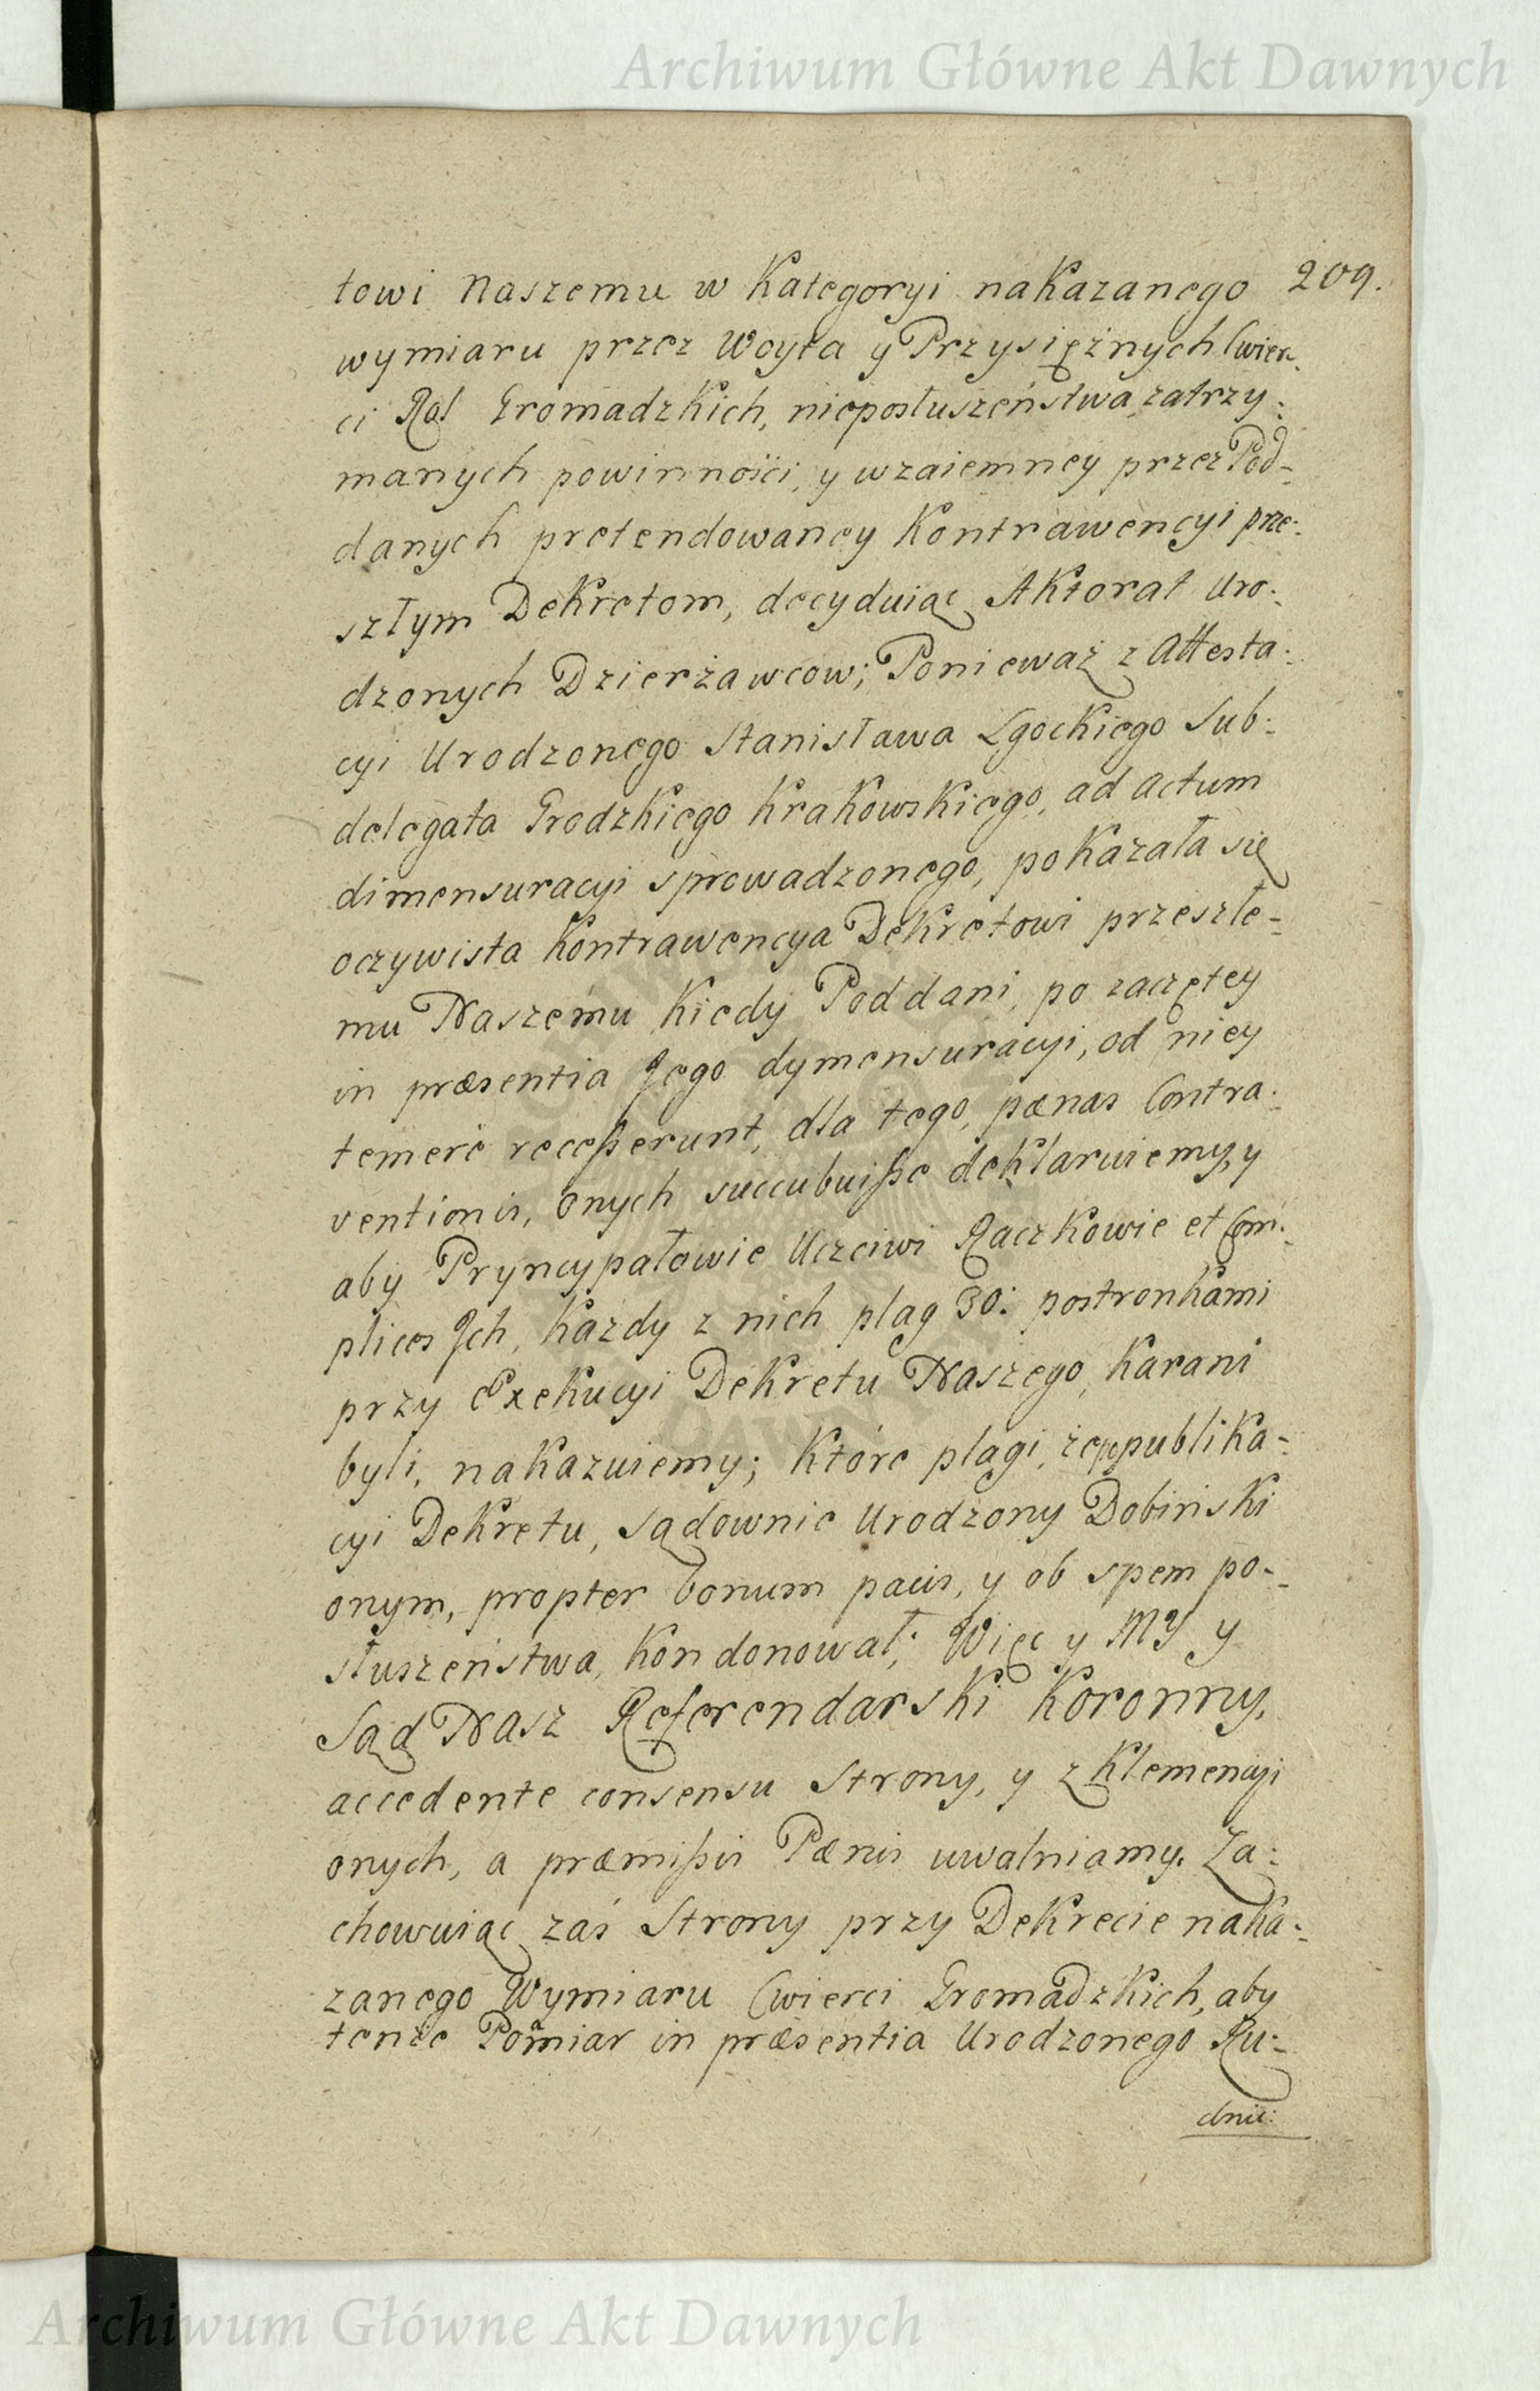 Archiwum Główne Akt Dawnych
209.
towi Naszemu w Kategoryi nakazanego
wymiaru przez Woyta y Przysiężnych Cwier-
ci Rol Gromadzkich, nieposłuszeństwa, zatrzy-
manych powinności, y wzaiemney przez Pod-
danych pretendowaney Kontrawencyi prze-
szłym Dekretom, decyduiąc Aktorat Uro-
dzonych Dzierżawcow; Ponieważ z Attesta-
cyi Urodzonego Stanisława Lgockiego Sub-
delegata Grodzkiego Krakowskiego, ad actum
dimensuracyi sprowadzonego, pokazała się
oczywista Kontrawencya Dekretowi przeszłe-
mu Naszemu, Kiedy Poddani, po zaczętey
in præsentia Jego dymensuracyi, od niey
temerè recesserunt, dla tego, pænas Contra-
ventionis, onych succubuisse deklaruiemy, y
aby Pryncypałowie Uczciwi Raczkowie et Com-
plices Jch, Każdy z nich plag 30: postronkami
przy Exekucyi Dekretu Naszego, Karani
byli, nakazuiemy; Które plagi, że po publika-
cyi Dekretu, Sądownie Urodzony Dobiński
onym, propter bonum pacis, y ob spem po-
słuszeństwa, Kondonował; Więc y MY y
Sąd Nasz Referendarski Koronny,
accedente consensu Strony, y z Klemencyi
onych, a præmissis Pænis uwalniamy. Za-
chowuiąc zaś Strony przy Dekrecie naka-
zanego Wymiaru Cwierci Gromadzkich, aby
tenże Pomiar in præsentia Urodzonego Ru-
dnic:
Archiwum Główne Akt Dawnych